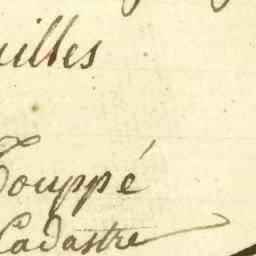 uilles
Touppé
Cadastre